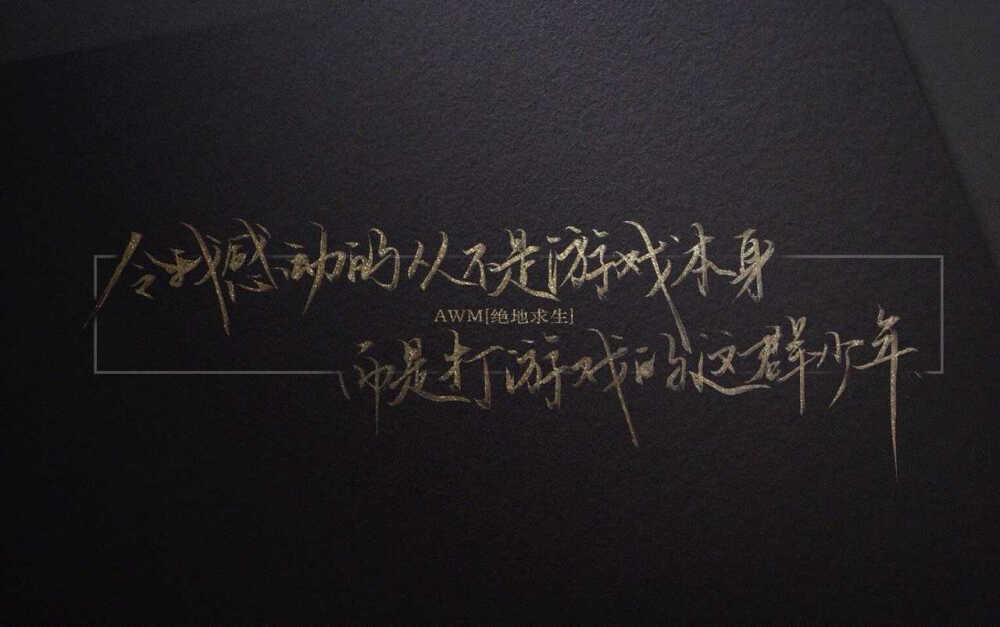 令我感动的从不是游戏本身
AWM[绝地求生]
而是打游戏的这群少年